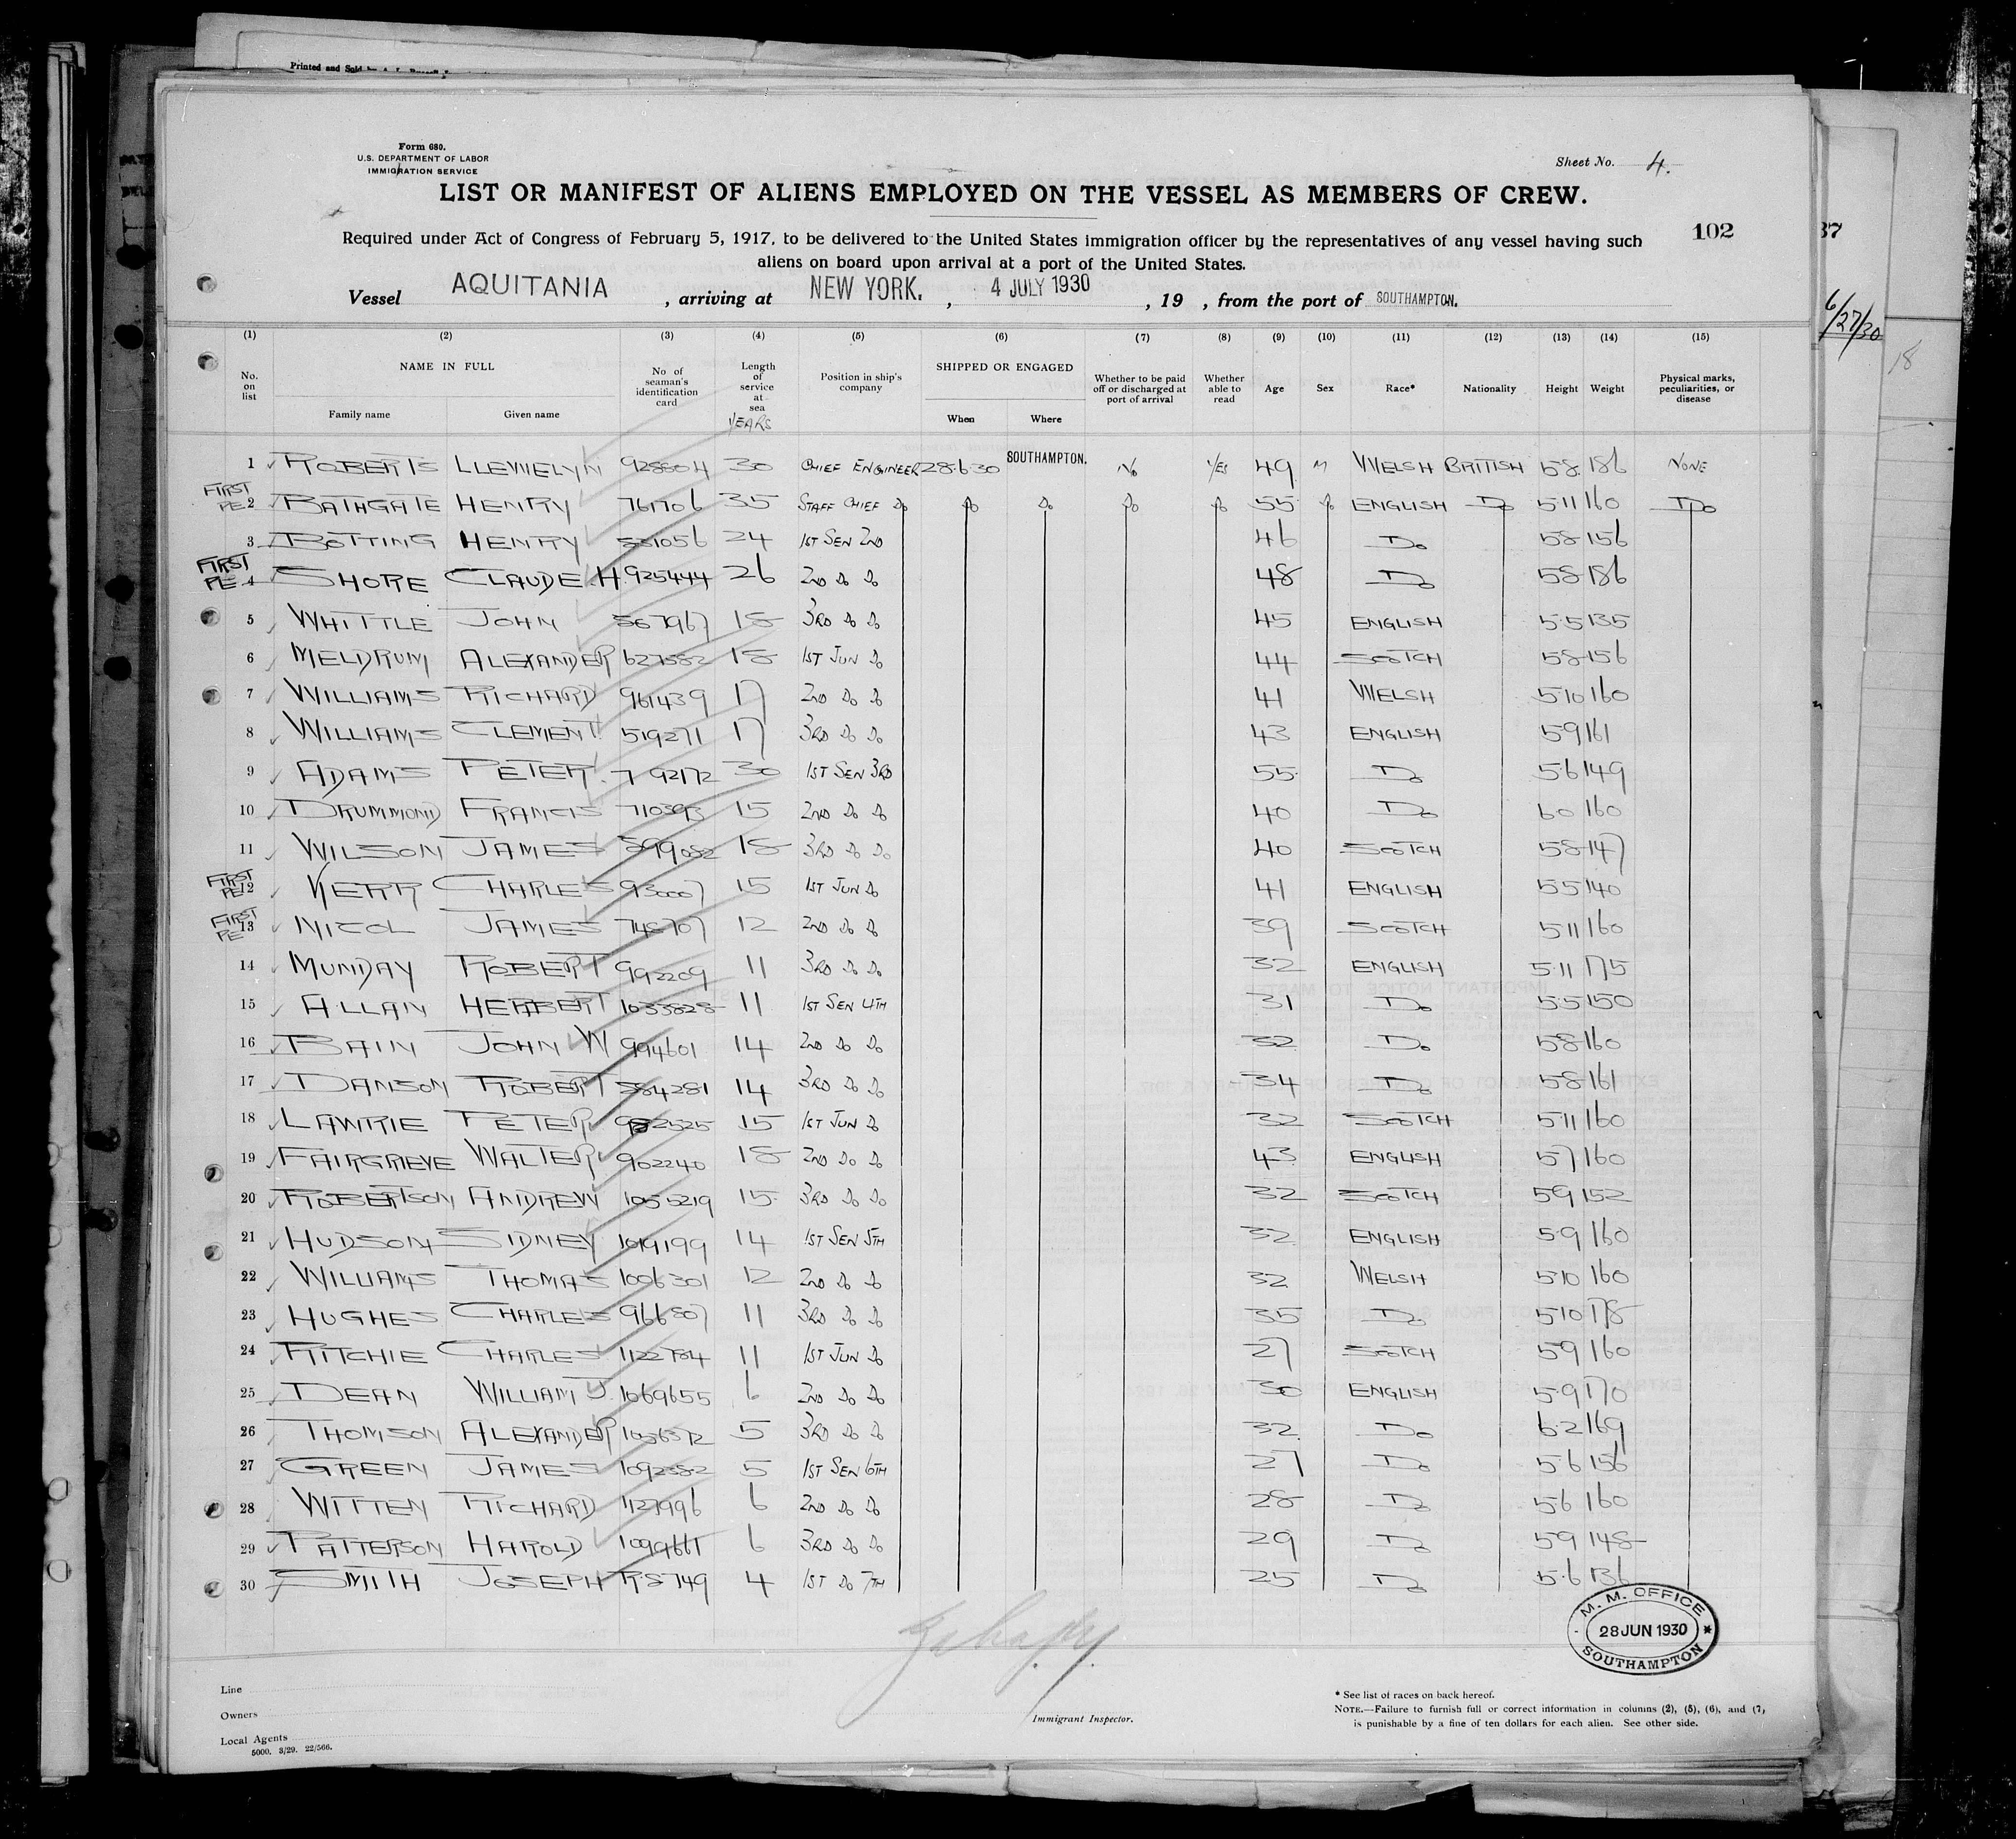 Printed and Sold by
Form 680.
U.S. DEPARTMENT OF LABOR
IMMIGRATION SERVICE
Sheet No. 4.
LIST OR MANIFEST OF ALIENS EMPLOYED ON THE VESSEL AS MEMBERS OF CREW.
102
37
Required under Act of Congress of February 5, 1917, to be delivered to the United States immigration officer by the representatives of any vessel having such
aliens on board upon arrival at a port of the United States.
Vessel AQUITANIA, arriving at NEW YORK., 4 JULY 1930, 19 , from the port of SOUTHAMPTON.
6/27/30
18
(1) (2) (3) (4) (5) (6) (7) (8) (9) (10) (11) (12) (13) (14) (15)
No. on list NAME IN FULL Family name Given name No of seaman's identification card Length of service at sea YEARS Position in ship's company SHIPPED OR ENGAGED When Where Whether to be paid off or discharged at port of arrival Whether able to read Age Sex Race* Nationality Height Weight Physical marks, peculiarities, or disease
1 ROBERTS LLEWELYN 928804 30 CHIEF ENGINEER 28.6.30 SOUTHAMPTON. No YES 49 M WELSH BRITISH 5.8 186 NONE
FIRST PE 2 BATHGATE HENRY 761706 35 STAFF CHIEF Do Do Do Do Do 55 Do ENGLISH Do 5.11 160 Do
3 BOTTING HENRY 531056 24 1ST SEN 2ND 46 Do 5.8 156
FIRST PE 4 SHORE CLAUDE.H. 925444 26 2ND Do Do 48 Do 5.8 186
5 WHITTLE JOHN 567967 18 3RD Do Do 45 ENGLISH 5.5 135
6 MELDRUM ALEXANDER 627582 18 1ST JUN Do 44 SCOTCH 5.8 156
7 WILLIAMS RICHARD 961439 17 2ND Do Do 41 WELSH 5.10 160
8 WILLIAMS CLEMENT 519271 17 3RD Do Do 43 ENGLISH 5.9 161
9 ADAMS PETER 792172 30 1ST SEN 3RD 55 Do 5.6 149
10 DRUMMOND FRANCIS 710393 15 2ND Do Do 40 Do 6.0 160
11 WILSON JAMES 599082 18 3RD Do Do 40 SCOTCH 5.8 147
FIRST PE 12 KERR CHARLES 930007 15 1ST JUN Do 41 ENGLISH 5.5 140
FIRST PE 13 NICOL JAMES 748707 12 2ND Do Do 39 SCOTCH 5.11 160
14 MUNDAY ROBERT 992209 11 3RD Do Do 32 ENGLISH 5.11 175
15 ALLAN HERBERT 1033828 11 1ST SEN 4TH 31 Do 5.5 150
16 BAIN JOHN W 994601 14 2ND Do Do 32 Do 5.8 160
17 DANSON ROBERT 584281 14 3RD Do Do 34 Do 5.8 161
18 LAWRIE PETER 15 1ST JUN Do 32 SCOTCH 5.11 160
19 FAIRGRIEVE WALTER 902240 18 2ND Do Do 43 ENGLISH 5.7 160
20 ROBERTSON ANDREW 1055219 15 3RD Do Do 32 SCOTCH 5.9 152
21 HUDSON SIDNEY 1019199 14 1ST SEN 5TH 32 ENGLISH 5.9 160
22 WILLIAMS THOMAS 1006301 12 2ND Do Do 32 WELSH 5.10 160
23 HUGHES CHARLES 966807 11 3RD Do Do 35 Do 5.10 178
24 RITCHIE CHARLES 1122784 11 1ST JUN Do 27 SCOTCH 5.9 160
25 DEAN WILLIAM J. 1069655 6 2ND Do Do 30 ENGLISH 5.9 170
26 THOMSON ALEXANDER 1056372 5 3RD Do Do 32 Do 6.2 169
27 GREEN JAMES 1092382 5 1ST SEN 6TH 27 Do 5.6 156
28 WITTEN RICHARD 1127996 6 2ND Do Do 28 Do 5.6 160
29 PATTERSON HAROLD 1099661 6 3RD Do Do 29 Do 5.9 148
30 SMITH JOSEPH R.S 749 4 1ST Do 7TH 25 Do 5.6 136
M. M. OFFICE
28 JUN 1930
SOUTHAMPTON
Line
Owners
Local Agents
5000. 3/29. 22/566.
Immigrant Inspector.
* See list of races on back hereof.
NOTE.—Failure to furnish full or correct information in columns (2), (5), (6), and (7,
is punishable by a fine of ten dollars for each alien. See other side.